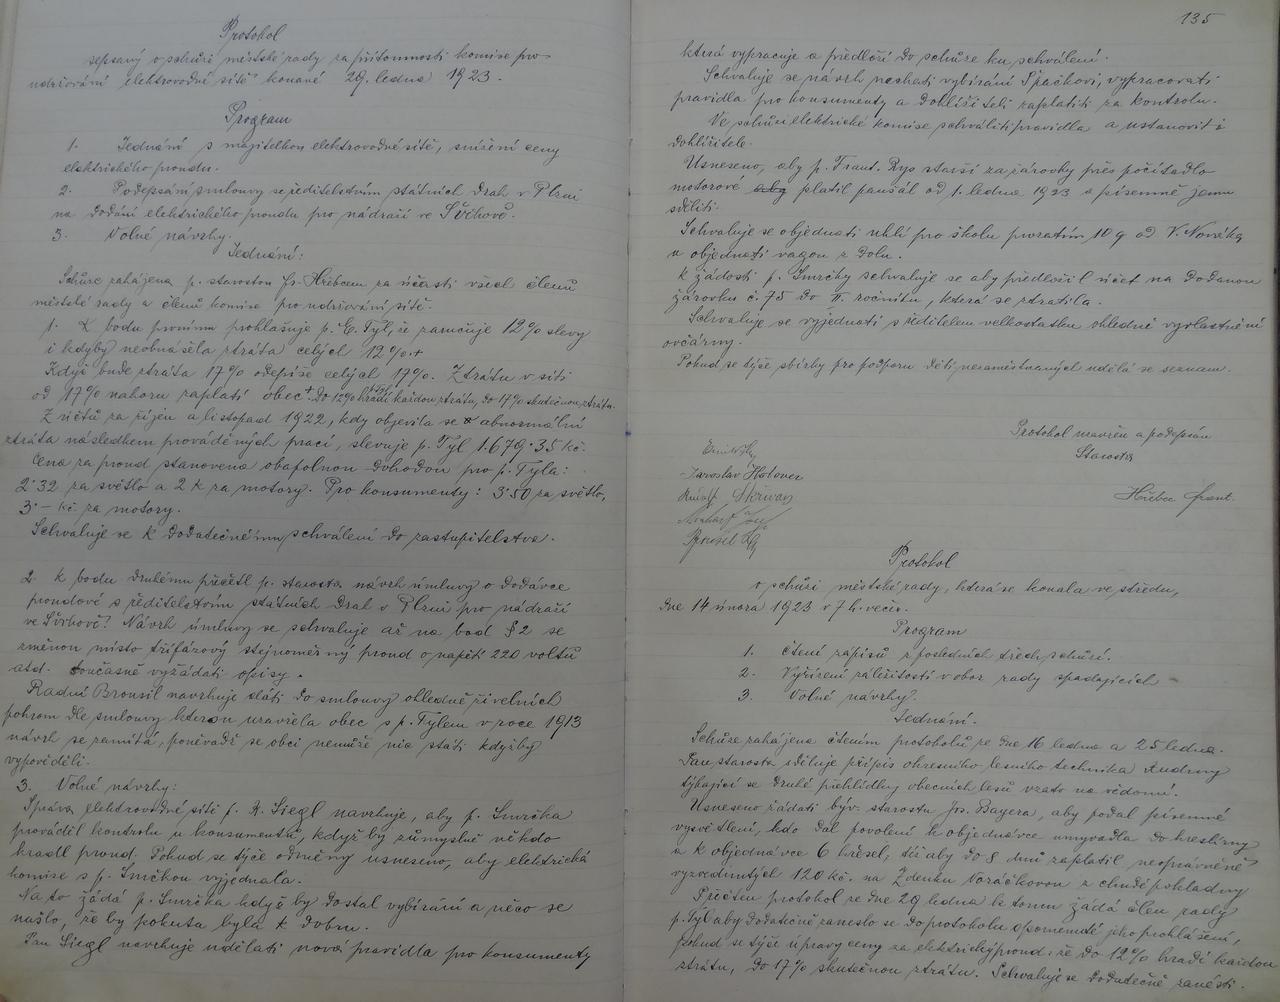 Protokol
sepsaný o schůzi městské rady za přítomnosti komise pro
udržování elektrovodné sítě konané 29. ledna 1923.
Program
1. Jednání s majitelkou elektrovodné sítě, snížení ceny
elektrického proudu.
2. Podepsání smlouvy se ředitelstvím státních drah v Plzni
na dodání elektrického proudu pro nádraží ve Švihově.
3. Volné návrhy.
Jednání:
Schůze zahájena p. starostou Fr. Hřebcem za účasti všech členů
městské rady a členů komise pro udržování sítě.
1. K bodu prvnímu prohlašuje p. E. Tyl, že zaručuje 12% slevy
i kdyby neobnášela ztráta celých 12%.+
Když bude ztráta 17% odepíše celých 17%. Ztrátu v síti
od 17% nahoru zaplatí obec + do 12% hradí každou ztrátu, do 17% skutečnou ztrátu.
Z účtů za říjen a listopad 1922, kdy objevila se abnormální
ztráta následkem prováděných prací, slevuje p. Tyl 1.679.35 kč.
Cena za proud stanovena obapolnou dohodou pro p. Tyla:
2.32 za světlo a 2 K za motory. Pro konsumenty: 3.50 za světlo,
3.- kč za motory.
Schvaluje se k dodatečnému schválení do zastupitelstva.
2. K bodu druhému přečtl p. starosta návrh úmluvy o dodávce
proudové s ředitelstvím státních drah v Plzni pro nádraží
ve Švihově. Návrh úmluvy se schvaluje až na bod § 2 se
změnou místo třífázový stejnoměrný proud o napětí 220 voltů
atd. Současně vyžádati opisy.
Radní Brousil navrhuje dáti do smlouvy ohledně živelních
pohrom dle smlouvy kterou uzavřela obec s p. Tylem v roce 1913
návrh se zamítá, poněvadž se obci nemůže nic státi kdyžby
vypověděli.
3. Volné návrhy:
Správa elektrovodné sítě p. R. Siegl navrhuje, aby p. Smrčka
prováděl kontrolu u konsumentů, když by zúmyslně někdo
kradl proud. Pokud se týče odměny usneseno, aby elektrická
komise s p. Smrčkou vyjednala.
Na to žádá p. Smrčka když by dostal vybírání a něco se
našlo, že by pokuta byla k dobru.
Pan Siegl navrhuje udělati nová pravidla pro konsumenty
135
která vypracuje a předloží do schůze ku schválení.
Schvaluje se návrh nechati vybírání Špačkovi, vypracovati
pravidla pro konsumenty a dohlížiteli zaplatiti za kontrolu.
Ve schůzi elektrické komise schváliti pravidla a ustanoviti
dohlížitele.
Usneseno, aby p. Frant. Rys starší za žárovky přes počítadlo
motorové platil paušál od 1. ledna 1923 a písemně jemu
sděliti.
Schvaluje se objednati uhlí pro školu prozatím 10 q od V. Nového
a objednati vagon z dolu.
K žádosti p. Smrčky schvaluje se aby předložil účet na dodanou
žárovku č. 75 do II. ročníku, která se ztratila.
Schvaluje se vyjednati s ředitelem velkostatku ohledně vyvlastnění
ovčárny.
Pokud se týče sbírky pro podporu dětí nezaměstnaných udělá se seznam.
Protokol uzavřen a podepsán
Starosta
Jaroslav Hátover
Rudolf Skřivan
Hřebec Frant.
Brousil
Protokol
o schůzi městské rady, která se konala ve středu,
dne 14 února 1923 v 7 h. večer.
Program
1. Čtení zápisů z posledních třech schůzí.
2. Vyřízení záležitostí v obor rady spadajících
3. Volné návrhy.
Jednání.
Schůze zahájena čtením protokolů ze dne 16 ledna a 25 ledna.
Pan starosta sděluje přípis okresního lesního technika Kudrny
týkající se druhé přehlídky obecních lesů vzato na vědomí.
Usneseno žádati býv. starostu Jos. Bayera, aby podal písemné
vysvětlení, kdo dal povolení k objednávce umyvadla do kreslírny
a k objednávce 6 křesel, též aby do 8 dnů zaplatil neoprávněně
vyzvednutých 120 kč. na Zdenku Voráčkovou z chudé pokladny
Přečten protokol ze dne 29 ledna k tomu žádá člen rady
p. Tyl aby dodatečně zaneslo se do protokolu opomenuté jeho prohlášení,
pokud se týče úpravy ceny za elektrický proud, že do 12% hradí každou
ztrátu, do 17% skutečnou ztrátu. Schvaluje se dodatečně zanésti.